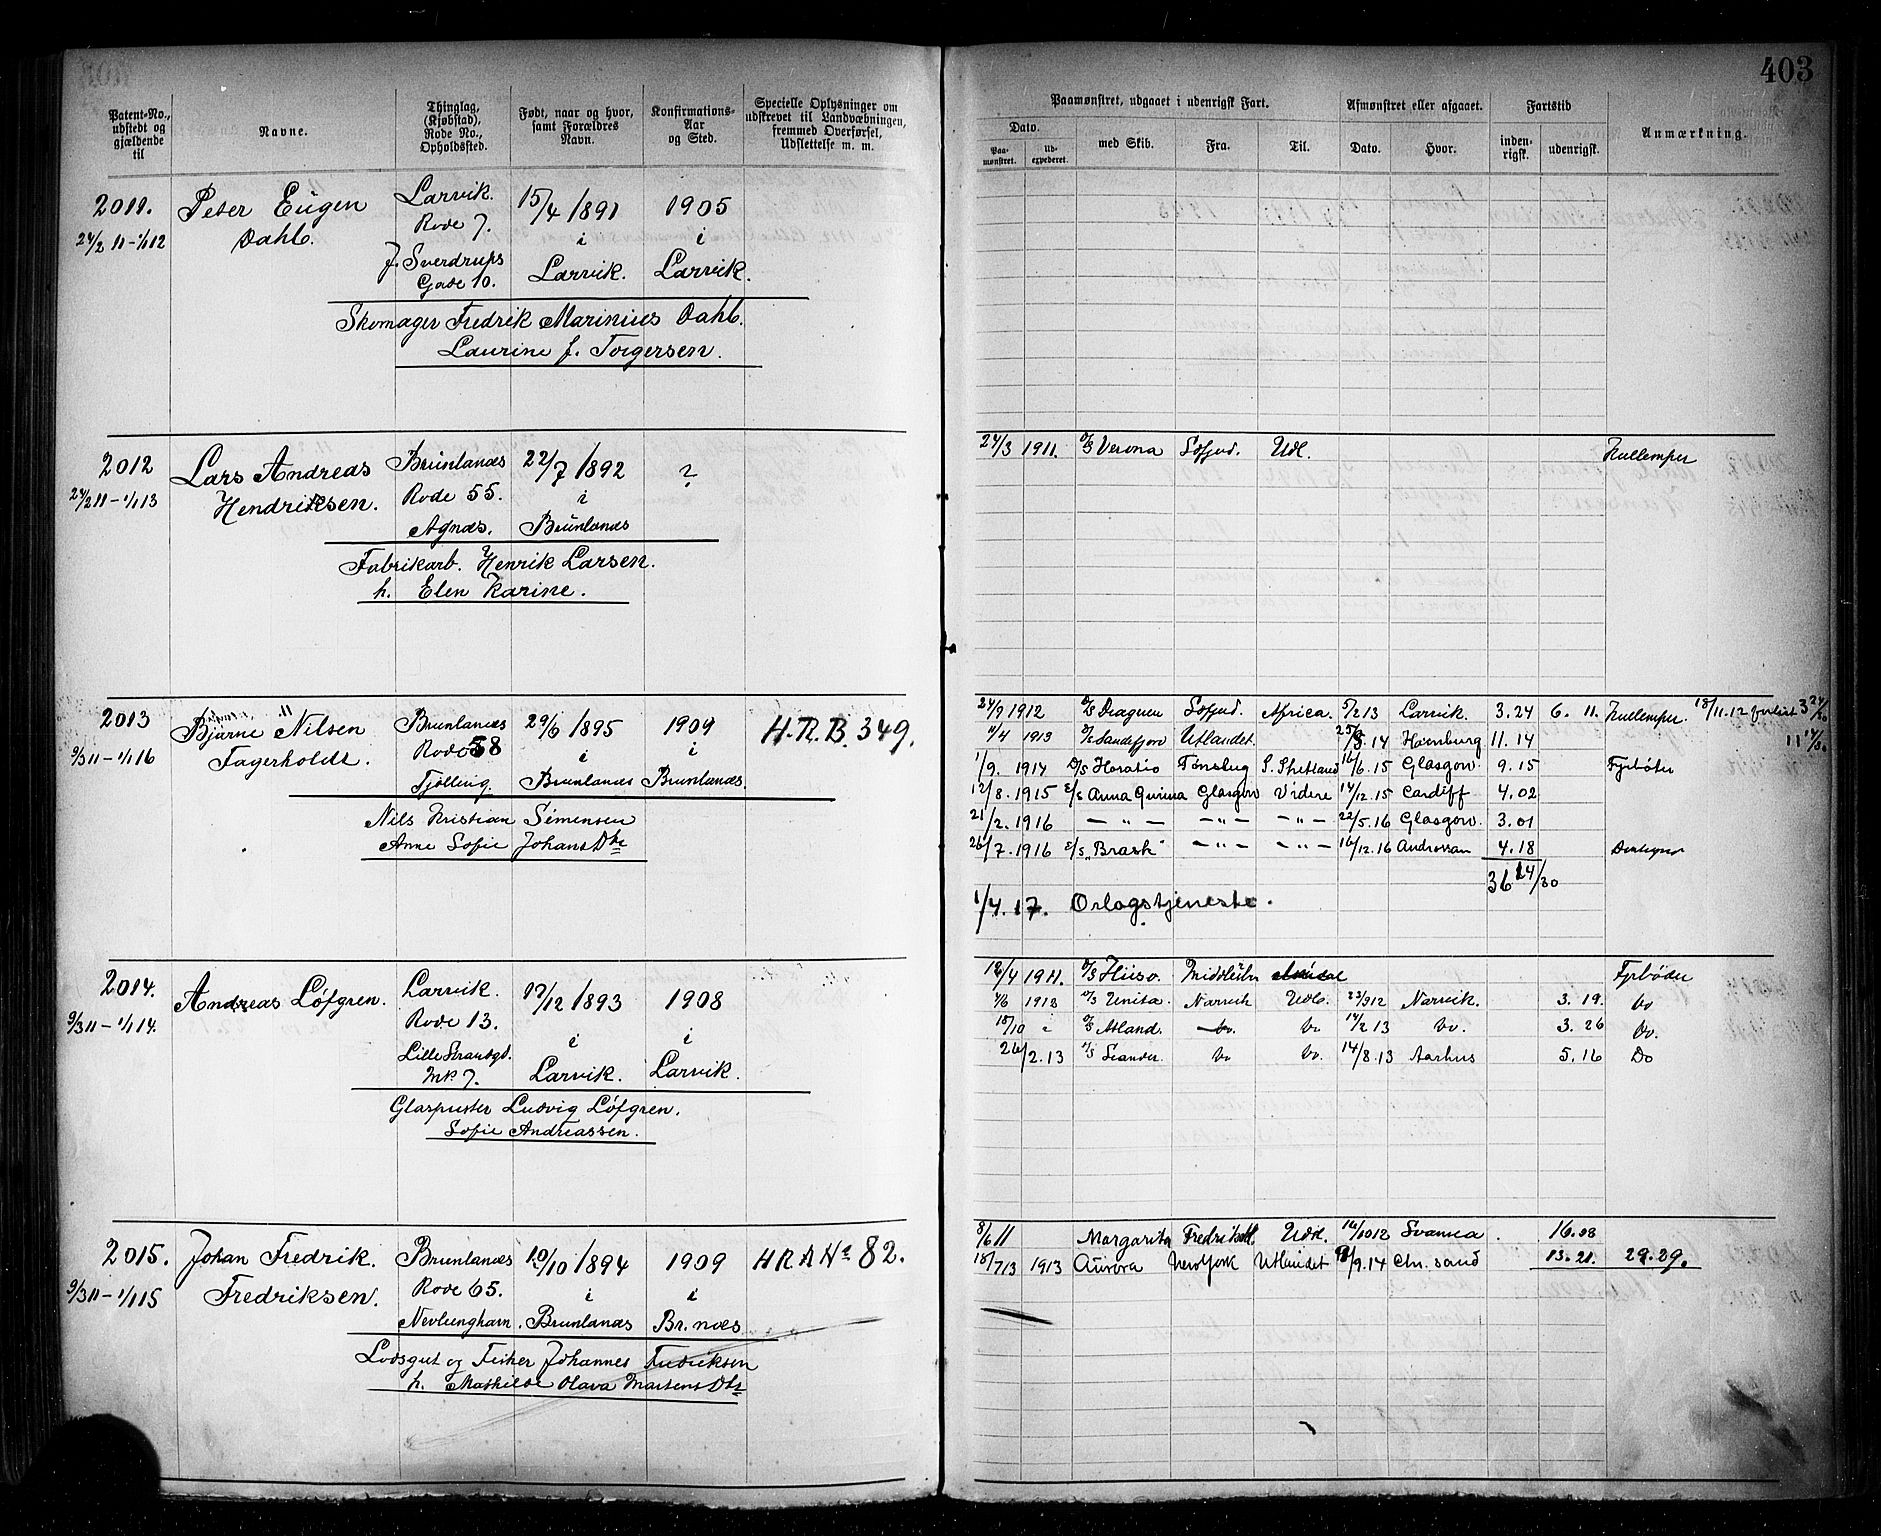 403
Patent-No., udstedt og gjældende til
Navne.
Thinglag, (Kjøbstad), Rode No., Opholdssted.
Født, naar og hvor, samt Forældres Navn.
Konfirmations-Aar og Sted.
Specielle Oplysninger om udskrevet til Landvæbningen, fremmed Overførsel, Udslettelse m. m.
Paamønstret, udgaaet i udenrigsk Fart.
Afmønstret eller afgaaet.
Fartstid
Anmærkning.
Dato.
Paa-mønstret.
Ud-expederet.
med Skib.
Fra.
Til.
Dato.
Hvor.
inden-rigsk.
udenrigsk.
2011. Peter Eugen Larvik. 15/4 1891 1905
24/2 11-1/1 12 Dahl. Rode 7. i i
J. Sverdrups Larvik. Larvik.
Gade 10.
Skomager Fredrik Marinius Dahl.
Laurine f. Torgersen.
2012 Lars Andreas Brunlanæs 22/7 1892 ?
24/2 11-1/1 13 Hendriksen. Rode 55. i
Agnæs. Brunlanæs
Fabrikarb. Henrik Larsen.
h. Elen Karine.
24/3 1911. D/S Verona Sofjord. Udl. Kullemper
2013 Bjarne Nilsen Brunlanæs 29/6 1895 1909 H.R.B. 349.
9/3 11-1/1 16 Fagerholdt. Rode 58 i i
Tjølling. Brunlanæs Brunlanæs.
Nils Kristian Simensen
Anne Sofie Johans Dtr
24/9 1912 Sofjord. Africa. 5/2 13 Larvik. 3.24 6. 11. Kullemper. 18/11.12 3 24/30
1/4 1913 D/S Sandefjord Utlandet. 14 Hamburg 11.14 11 14/30
1/9. 1914 D/S Horatio Tønsbug S. Shetland 16/6.15 Glasgow. 9.15 Fyrbøter
12/8. 1915 S/S Anna Glasgow Videre 14/12.15 Cardiff 4.02
21/2. 1916 — " — — " — — " — 22/5.16 Glasgow. 3.01
26/7. 1916 S/S "Brask" — " — — " — 16/12.16 Androssan 4.18
36 24/30
1/4.17. Orlogstjeneste.
2014. Andreas Löfgren. Larvik. 17/12 1893 1908
9/3 11-1/1 14. Rode 13. i i
Lille Strandgd. Larvik. Larvik.
No 7.
Glaspuster Ludvig Löfgren.
Sofie Andreassen.
1911. Fyrbøder
1912 D/S Unita. Narvik Udl. 23/9 12 Narvik. 3. 19. Do
18/10 " Do. Do 14/2 13 Do. 3. 26 Do.
26/2.13 Do Do. 14/8.13 Aarhus 5. 16 Do
2015. Johan Fredrik. Brunlanæs 10/10 1894 1909 H R A No 82.
9/3 11-1/1 15 Fredriksen. Rode 65. i i
Nevlunghavn. Brunlanæs Br.næs
Lodsgut og Fisker Johannes Fredriksen
h. Mathilde Olava Martens Dtr
8/6 11 Margarita Udl. 16/10 12 Svansea. 16.08
18/7 13 1913 Aurora NewYork Utlandet 9.14 Chr. sand 13. 21. 29.29.